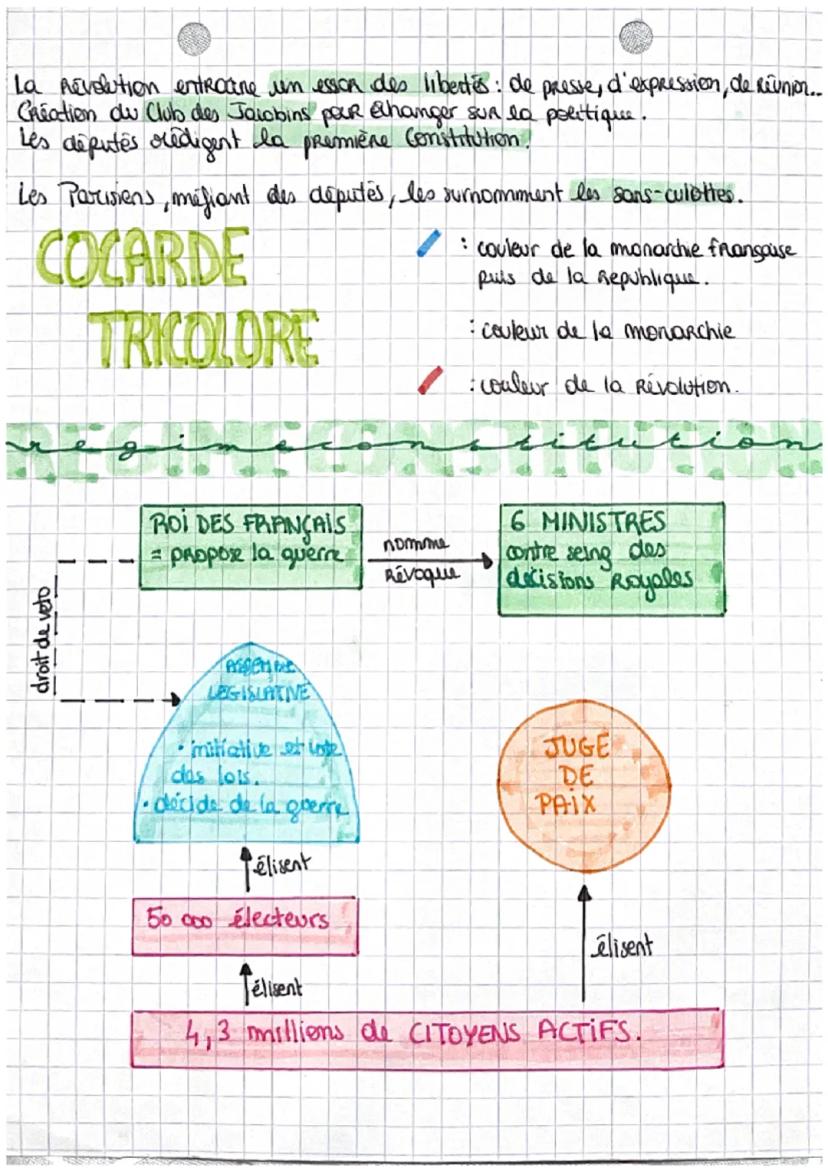 La Révolution entraîne un essor des libertés : de presse, d'expression, de réunion...
Création du Club des Jacobins pour échanger sur la politique.
Les députés rédigent la première Constitution.
Les Parisiens, méfiant des députés, les surnomment les sans-culottes.
COCARDE
TRICOLORE
: couleur de la monarchie française
puis de la République.
: couleur de la monarchie
: couleur de la Révolution.
regimeconstitution
ROI DES FRANÇAIS
= propose la guerre
nomme
Révoque
6 MINISTRES
contre seing des
décisions Royales
droit de veto
ASSEMBLÉE
LÉGISLATIVE
• initiative et vote
des lois.
• décide de la guerre
JUGE
DE
PAIX
élisent
50 000 électeurs
élisent
élisent
4,3 millions de CITOYENS ACTIFS.